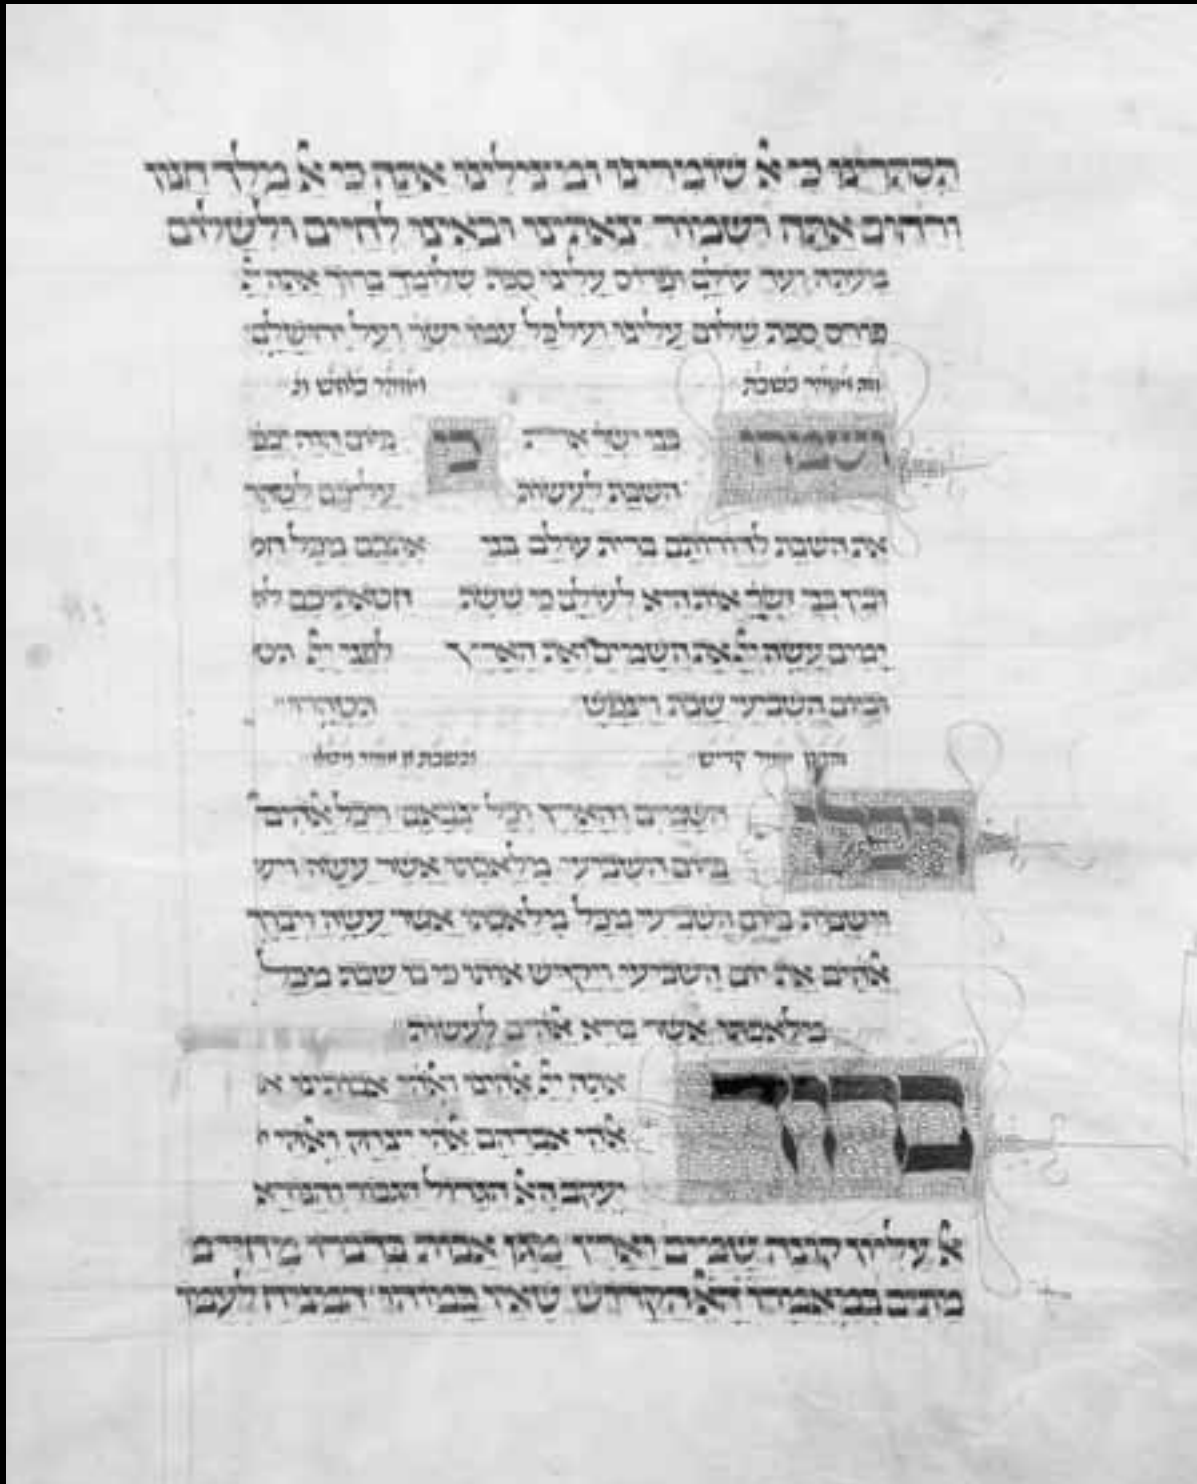 תסתירינו כי א̇ שומרינו ומצילינו אתה כי א̇ מלך חנון
ורחום אתה ושמור צאתינו ובואינו לחיים ולשלום
מעתה ועד עולם ופרוס עלינו סכת שלומך ברוך אתה יי̇
פורס סכת שלום עלינו ועל כל עמו ישר̇ ועל ירושלם
בשבת
ושמרו בני ישר̇ את
השבת לעשות
את השבת לדורותם ברית עולם בני
ובין בני ישר̇ אות היא לעולם כי ששת
ימים עשה יי̇ את השמים ואת הארץ
וביום השביעי שבת וינפש
כי ביום הזה יכפ
עליכם לטהר
אתכם מכל חט
חטאתיכם לפ
לפני יי̇ תט
תטהרו
קדיש
ויכלו השמים והארץ וכל צבאם ויכל אהים
ביום השביעי מלאכתו אשר עשה ויש
וישבות ביום השביעי מכל מלאכתו אשר עשה ויברך
אהים את יום השביעי ויקדש אותו כי בו שבת מכל
מלאכתו אשר ברא אהים לעשות
ברוך אתה יי̇ אהינו ואהי אבותינו א
אהי אברהם אהי יצחק ואהי י
יעקב הא̇ הגדול הגבור והנורא
א̇ עליון קונה שמים וארץ מגן אבות בדברו מחיה
מתים במאמרו הא̇ הקדוש שאין כמוהו המניח לעמו